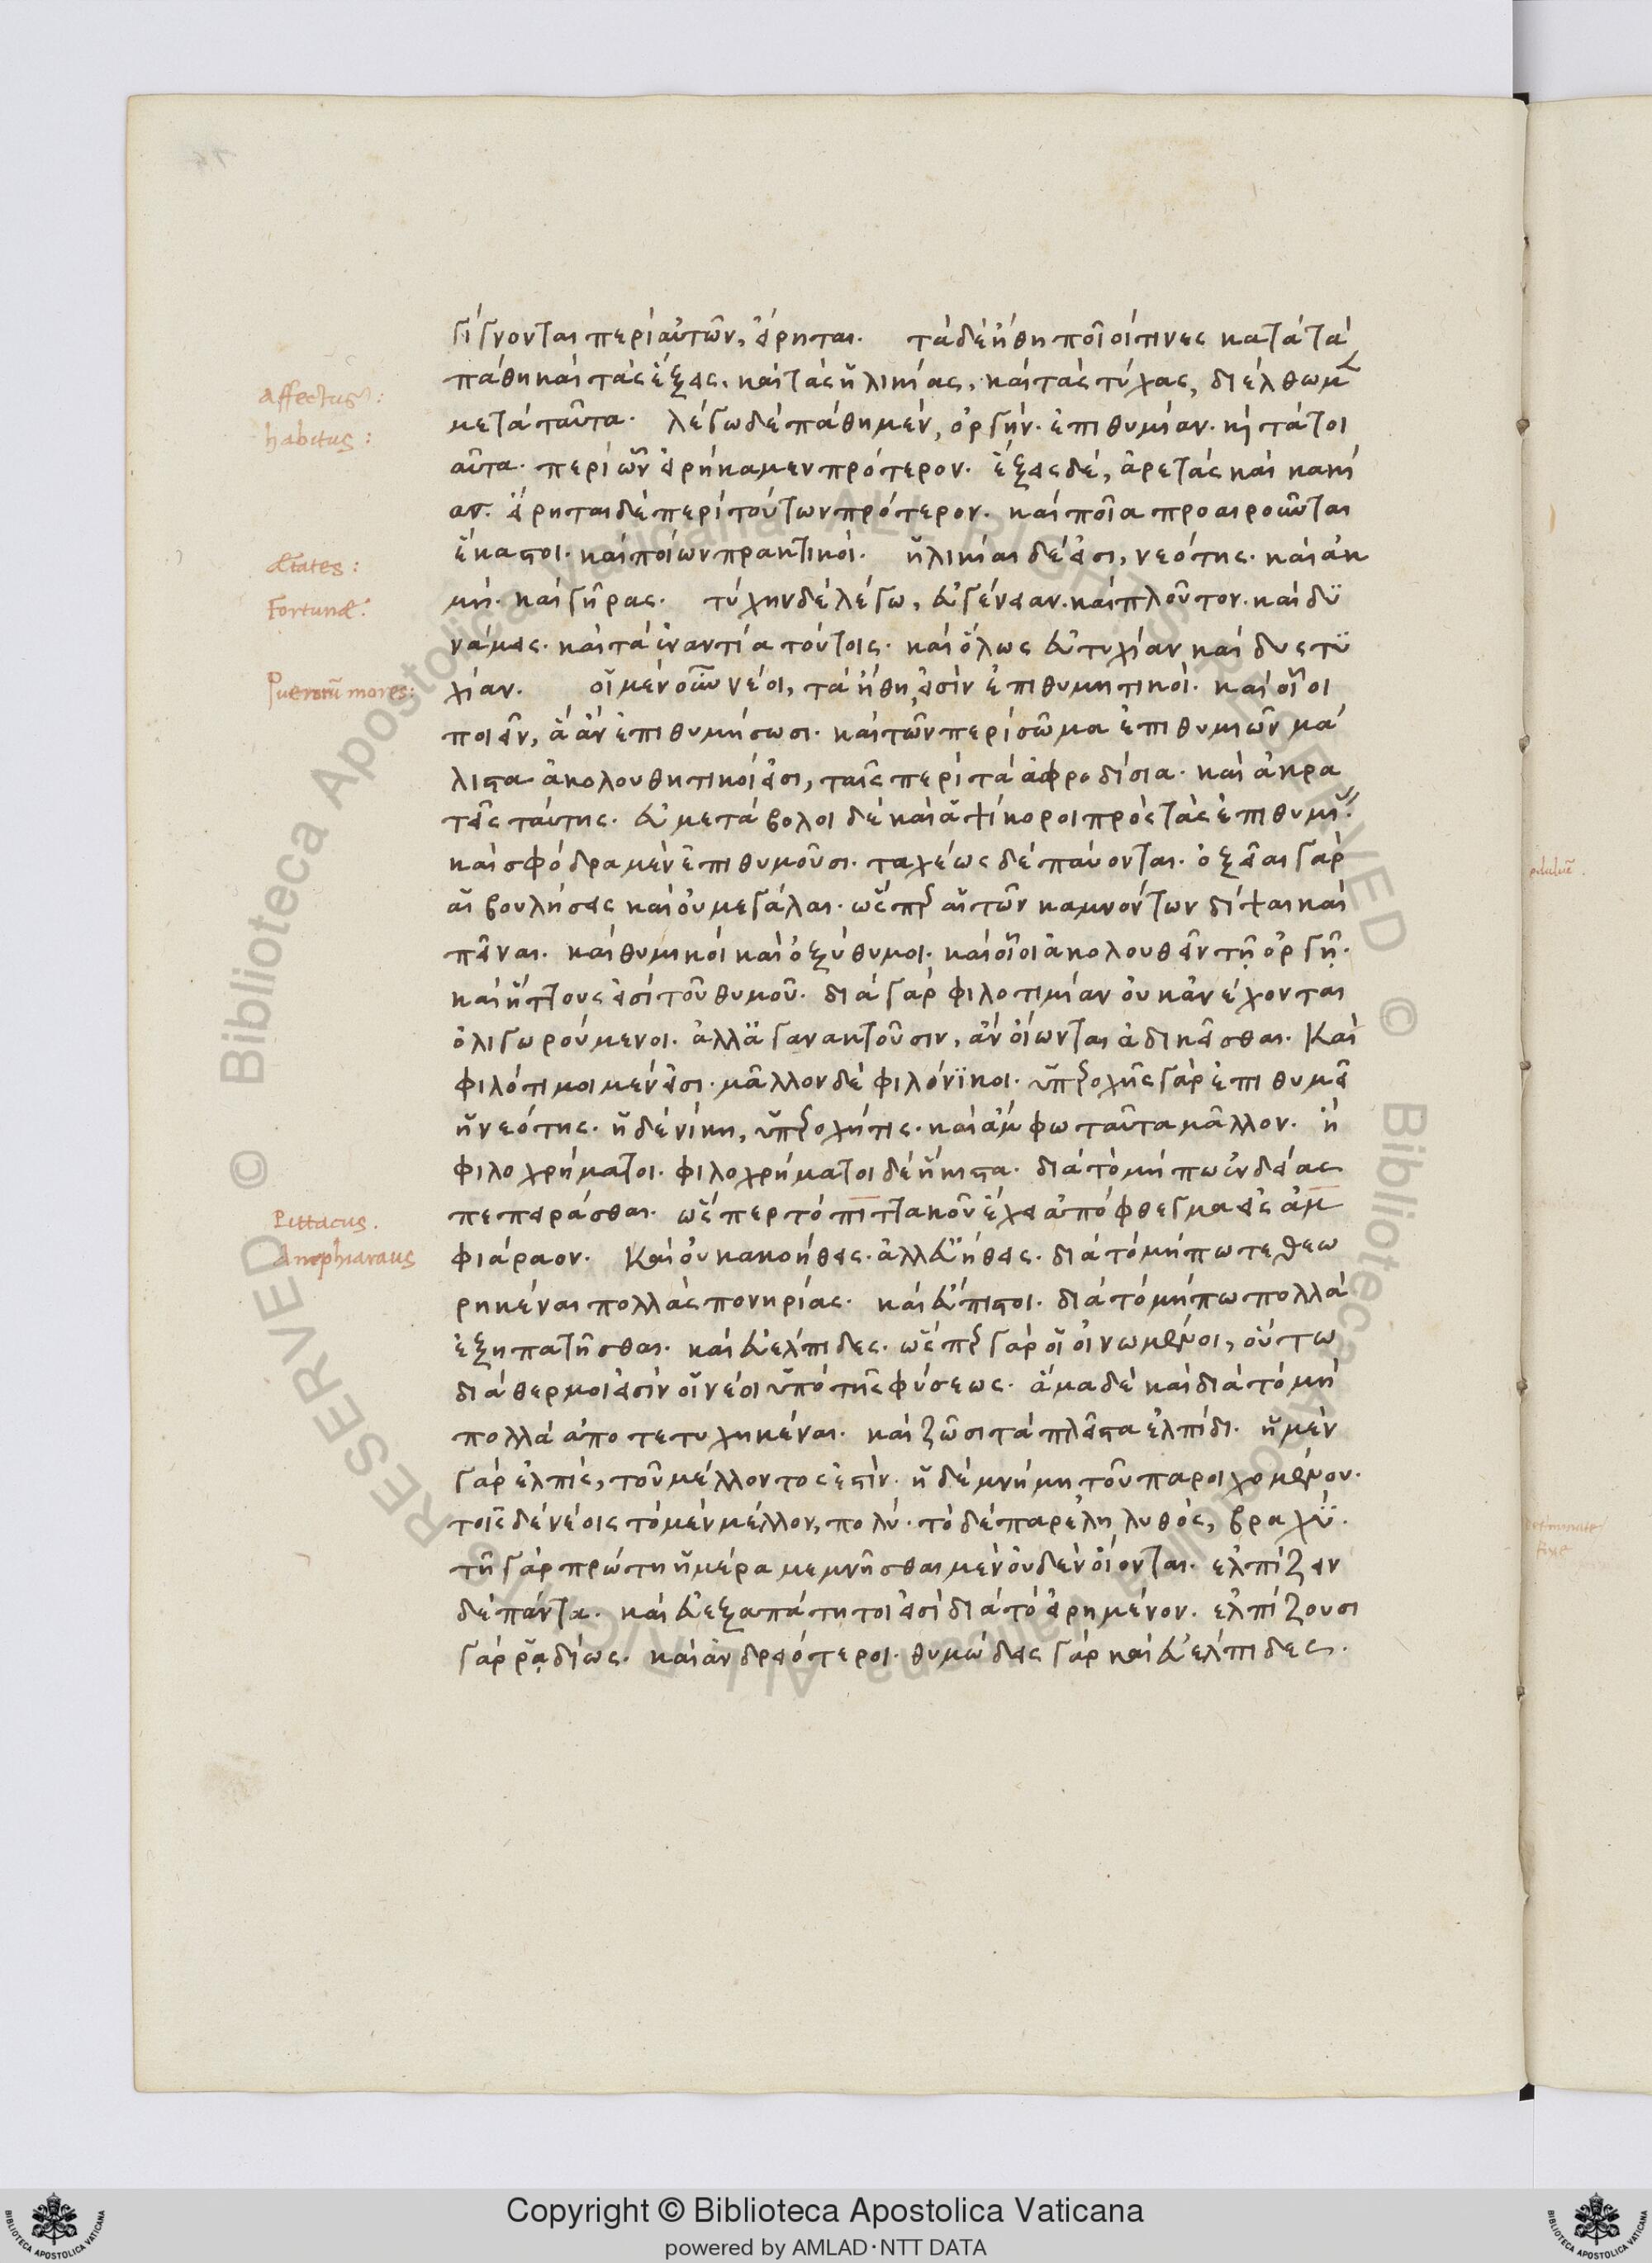 γίγνονται περὶ αὐτῶν, εἴρηται. τὰ δὲ ἤθη ποῖοι τινες κατὰ τὰ
affectus:
πάθη καὶ τὰς ἕξεις, καὶ τὰς ἡλικίας, καὶ τὰς τύχας, διέλθωμ
habitus:
μετὰ ταῦτα. λέγω δὲ πάθη μὲν, ὀργὴν. ἐπιθυμίαν. κ τὰ τοι
αῦτα. περὶ ὧν εἰρήκαμεν πρότερον. ἕξεις δὲ, ἀρετὰς καὶ κακί
ας. εἴρηται δὲ περὶ τούτων πρότερον. καὶ ποῖα προαιροῦνται
ἕκαστοι. καὶ ποίων πρακτικοὶ. ἡλικίαι δὲ εἰσι, νεότης. καὶ ἀκ
ætates:
μὴ. καὶ γῆρας. τύχην δὲ λέγω, εὐγένειαν. καὶ πλοῦτον. καὶ δϋ
Fortunæ:
νάμεις. καὶ τὰ ἐναντία τούτοις. καὶ ὅλως εὐτυχίαν καὶ δυστϋ
Puerorū mores:
χίαν. οἱ μὲν οὖν νέοι, τὰ ἤθη εἰσὶν ἐπιθυμητικοὶ. καὶ οἷοι
ποιεῖν, ἃ ἂν ἐπιθυμήσωσι. καὶ τῶν περὶ σῶμα ἐπιθυμιῶν μά
λιστα ἀκολουθητικοί εἰσι, ταῖς περὶ τὰ ἀφροδίσια. καὶ ἀκρα
τεῖς ταύτης. εὐμετάβολοι δὲ καὶ ἁψίκοροι πρὸς τὰς ἐπιθυμί
καὶ σφόδρα μὲν ἐπιθυμοῦσι. ταχέως δὲ παύονται. ὀξεῖαι γὰρ
αἱ βουλήσεις καὶ οὐ μεγάλαι. ὥσπερ αἱ τῶν καμνόντων δίψαι καὶ
πεῖναι. καὶ θυμικοὶ καὶ ὀξύθυμοι. καὶ οἷοι ἀκολουθεῖν τῇ ὀργῇ.
καὶ ἥττους εἰσὶ τοῦ θυμοῦ. διὰ γὰρ φιλοτιμίαν οὐκ ἀνέχονται
ὀλιγωρούμενοι. ἀλλ' ἀγανακτοῦσιν, ἂν οἴωνται ἀδικεῖσθαι. Καὶ
φιλότιμοι μέν εἰσι. μᾶλλον δὲ φιλόνϊκοι. ὑπεροχῆς γὰρ ἐπιθυμεῖ
ἡ νεότης. ἡ δὲ νίκη, ὑπεροχή τις. καὶ ἄμφω ταῦτα μᾶλλον. ἢ
φιλοχρήματοι. φιλοχρήματοι δὲ ἥκιστα. διὰ τὸ μήπω ἐνδείας
Pittacus.
πεπειρᾶσθαι. ὥσπερ τὸ πιττακοῦ ἔχει ἀπόφθεγμα εἰς ἀμ
Amphiaraus
φιάραον. Καὶ οὐ κακοήθεις. ἀλλ' εὐήθεις. διὰ τὸ μήπω τεθεω
ρηκέναι πολλὰς πονηρίας. καὶ εὔπιστοι. διὰ τὸ μήπω πολλὰ
ἐξηπατῆσθαι. καὶ εὐέλπιδες. ὥσπερ γὰρ οἱ οἰνωμένοι, οὕτω
διάθερμοι εἰσὶν οἱ νέοι ὑπὸ τῆς φύσεως. ἅμα δὲ καὶ διὰ τὸ μὴ
πολλὰ ἀποτετυχηκέναι. καὶ ζῶσι τὰ πλεῖστα ἐλπίδι. ἡ μὲν
γὰρ ἐλπὶς, τοῦ μέλλοντος ἐστὶν. ἡ δὲ μνήμη τοῦ παροιχομένου.
τοῖς δὲ νέοις τὸ μὲν μέλλον, πολὺ. τὸ δὲ παρεληλυθὸς, βραχϋ.
τῇ γὰρ πρώτη ἡμέρα μεμνῆσθαι μὲν οὐδὲν οἴονται. ἐλπίζειν
δὲ πάντα. καὶ εὐεξαπάτητοι εἰσὶ διὰ τὸ εἰρημένον. ἐλπίζουσι
γὰρ ῥᾳδίως. καὶ ἀνδρειότεροι. θυμώδεις γὰρ καὶ εὐέλπιδες.
Copyright © Biblioteca Apostolica Vaticana
powered by AMLAD·NTT DATA